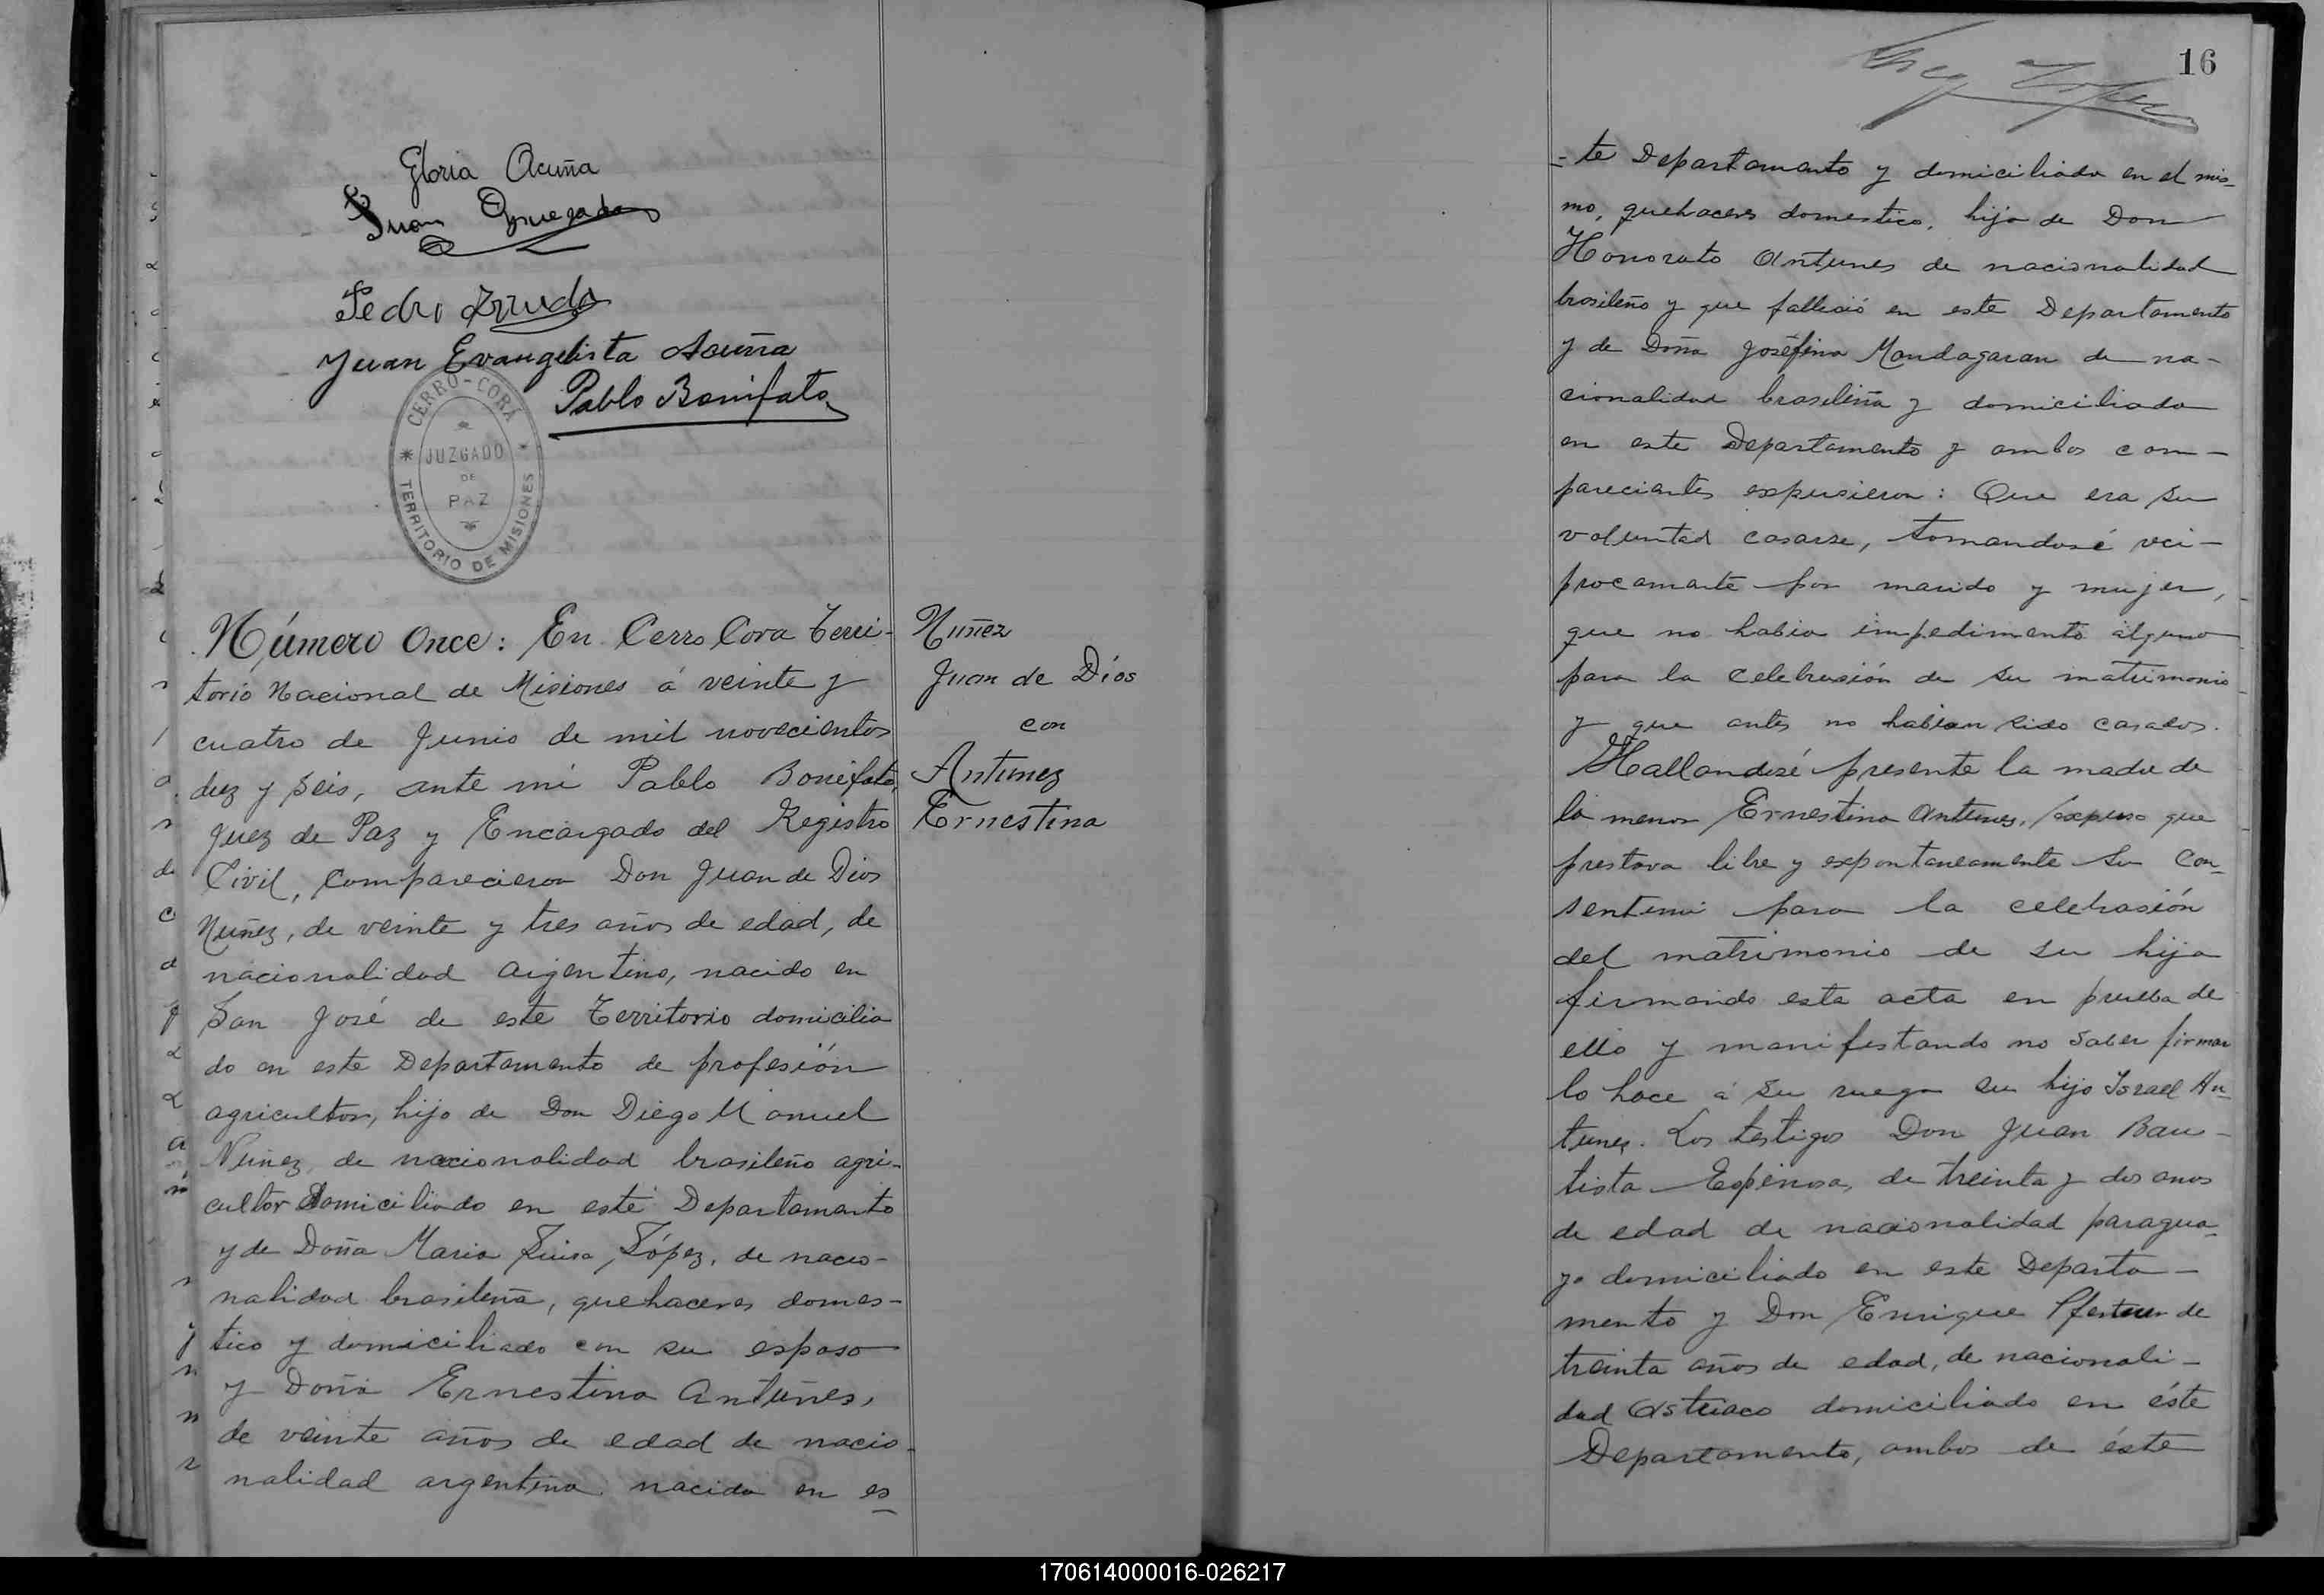 Gloria Acuña
Juan
Pedro Arruda
Juan Evangelista Acuña
Pablo Bonifato
CERRO-CORA
JUZGADO
DE
PAZ
TERRITORIO DE MISIONES
Número Once: En Cerro Cora Terri-
torio Nacional de Misiones á veinte y
cuatro de Junio de mil novecientos
diez y seis, ante mi Pablo Bonifato,
Juez de Paz y Encargado del Registro
Civil, comparecieron Don Juan de Dios
Nuñez, de veinte y tres años de edad, de
nacionalidad argentino, nacido en
San José de este Territorio domicilia
do en este Departamento de profesión
agricultor, hijo de Don Diego Manuel
Nuñez, de nacionalidad brasileño agri-
cultor domiciliado en este Departamento
y de Doña Maria Luisa López, de nacio-
nalidad brasileña, quehaceres domes-
tico y domiciliado con su esposo
y Doña Ernestina Antunes,
de veinte años de edad de nacio-
nalidad argentina nacida en es
Nuñez
Juan de Dios
con
Antunez
Ernestina
16
-te Departamento y domiciliada en el mis-
mo, quehaceres domestico, hija de Don
Honorato Antunes de nacionalidad
brasileño y que fallesió en este Departamento
y de Doña Joséfina Mandagaran de na-
cionalidad brasileña y domiciliada
en este Departamento y ambos com-
parecientes expusieron: Que era su
voluntad casarse, tomandosé reci-
procamente por marido y mujer,
que no habia impedimento alguno
para la celebrasión de su matrimonio
y que antes no habian sido casados.
Hallandosé presente la madre de
la menor Ernestina Antunes, expuso que
prestava libre y expontaneamente su con-
sentimi para la celebrasión
del matrimonio de su hija
firmando esta acta en prueba de
ello y manifestando no saber firmar
lo hace á su ruego su hijo Israel An-
tunes. Los testigos Don Juan Bau-
tista Espinosa, de treinta y dos anos
de edad de nacionalidad paragua-
yo domiciliado en este Departa-
mento y Don Enrique de
treinta años de edad, de nacionali-
dad Astriaco domiciliado en éste
Departamento, ambos de éste
170614000016-026217